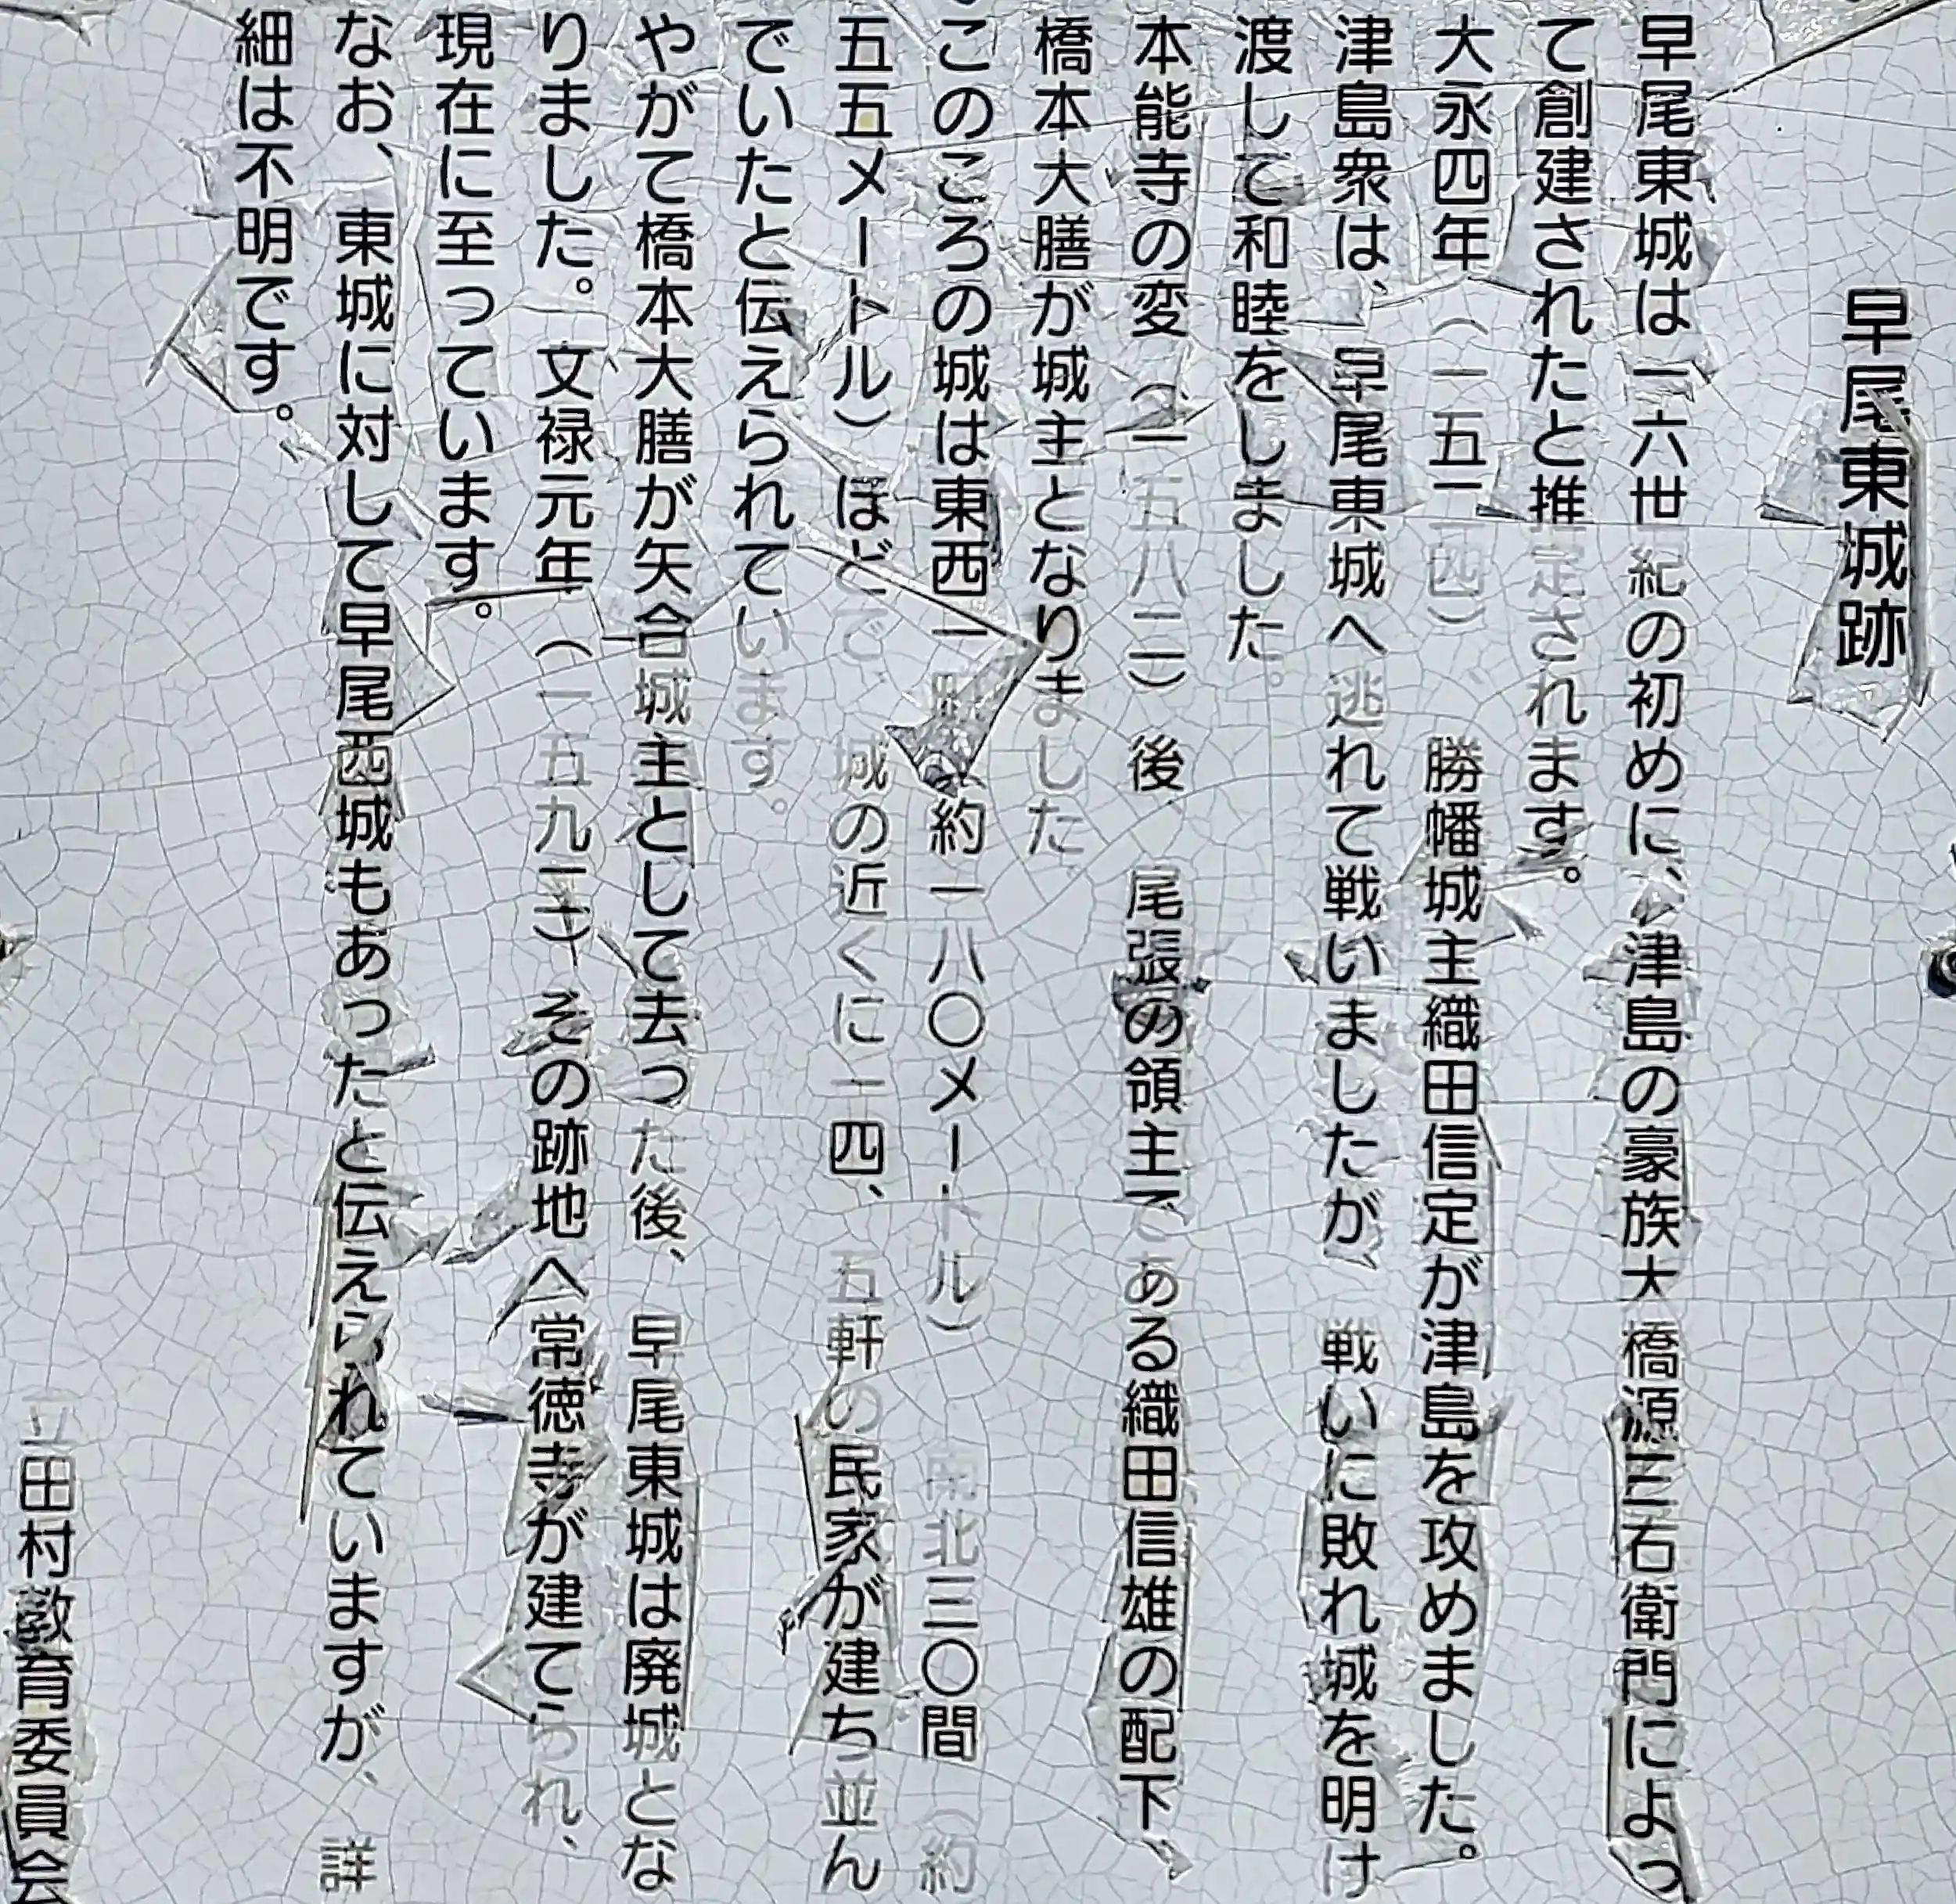 早尾東城跡
早尾東城は一六世紀の初めに、津島の豪族大橋源三右衛門によっ
て創建されたと推定されます。
大永四年（一五二四）、勝幡城主織田信定が津島を攻めました。
津島衆は、早尾東城へ逃れて戦いましたが、戦いに敗れ城を明け
渡して和睦をしました。
本能寺の変（一五八二）後、尾張の領主である織田信雄の配下、
橋本大膳が城主となりました。
このころの城は東西一町（約一八〇メートル）南北三〇間（約
五五メートル）ほどで、城の近くに一四、五軒の民家が建ち並ん
でいたと伝えられています。
やがて橋本大膳が矢合城主として去った後、早尾東城は廃城とな
りました。文禄元年（一五九二）その跡地へ常徳寺が建てられ、
現在に至っています。
なお、東城に対して早尾西城もあったと伝えられていますが、詳
細は不明です。
立田村教育委員会